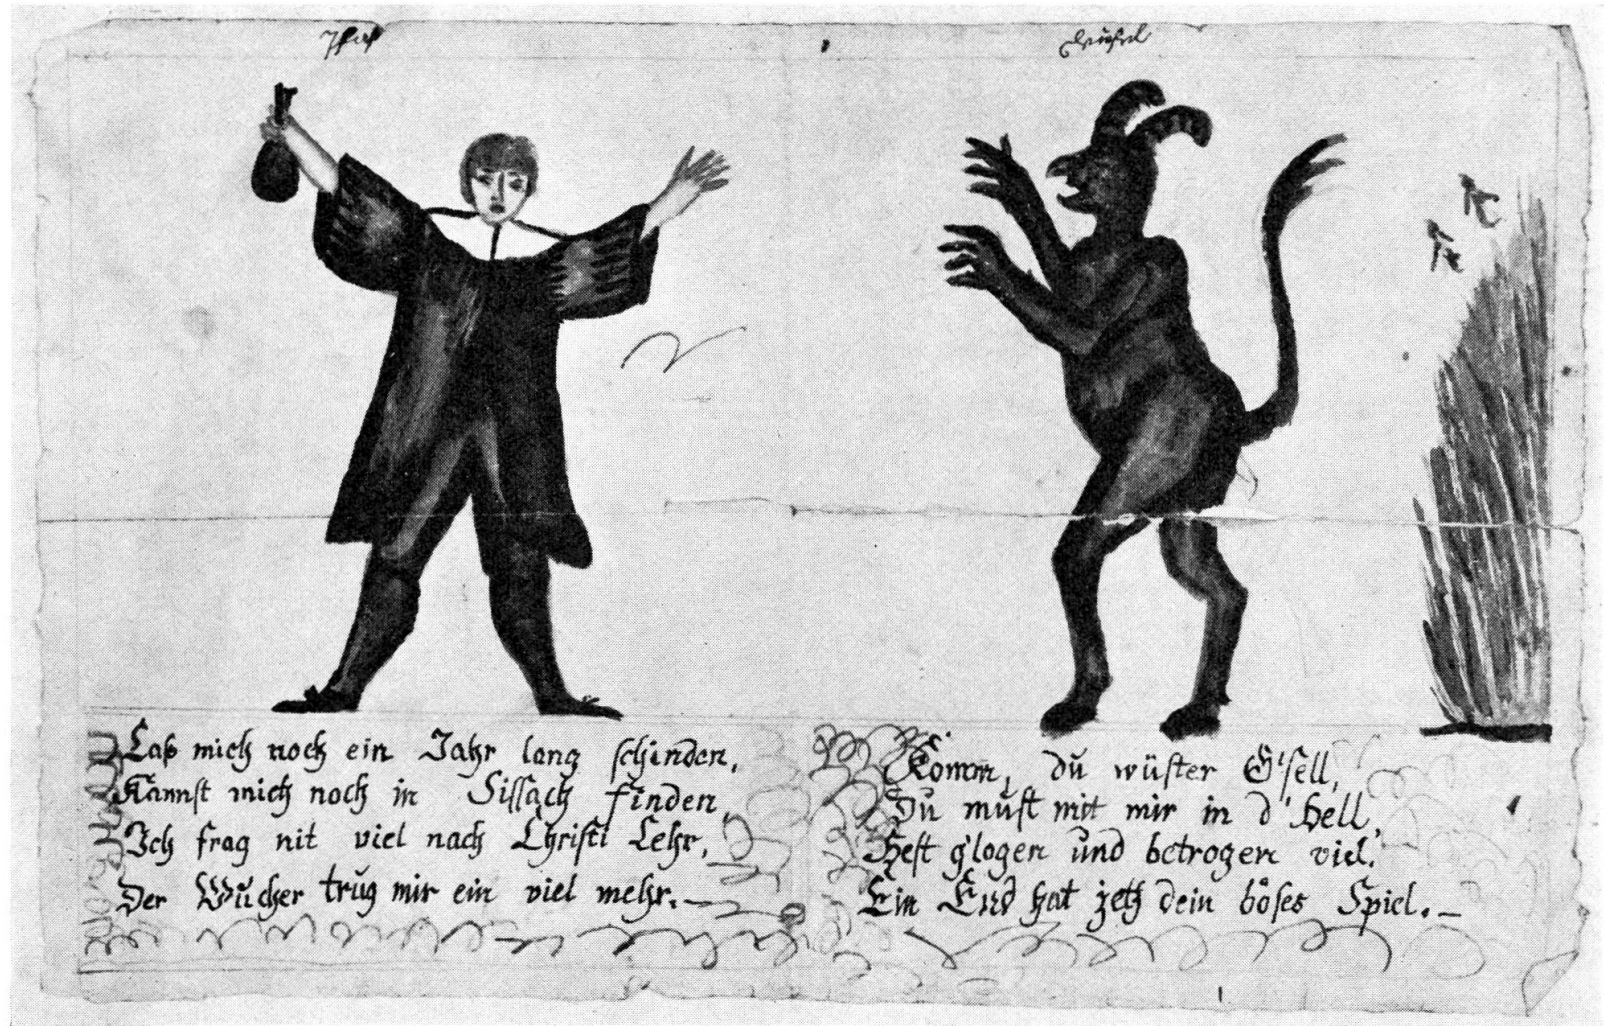 Teüfel
Laß mich noch ein Jahr lang schinden,
Kannst mich noch in Sissach finden,
Ich frag nit viel nach Christi Lehr,
Der Wůcher trůg mir ein viel mehr.–
Komm, dů wüster G'sell,
Dů můst mit mir in d' Hell,
Hest g'logen ůnd betrogen viel.
Ein End hat jetz dein böses Spiel.–